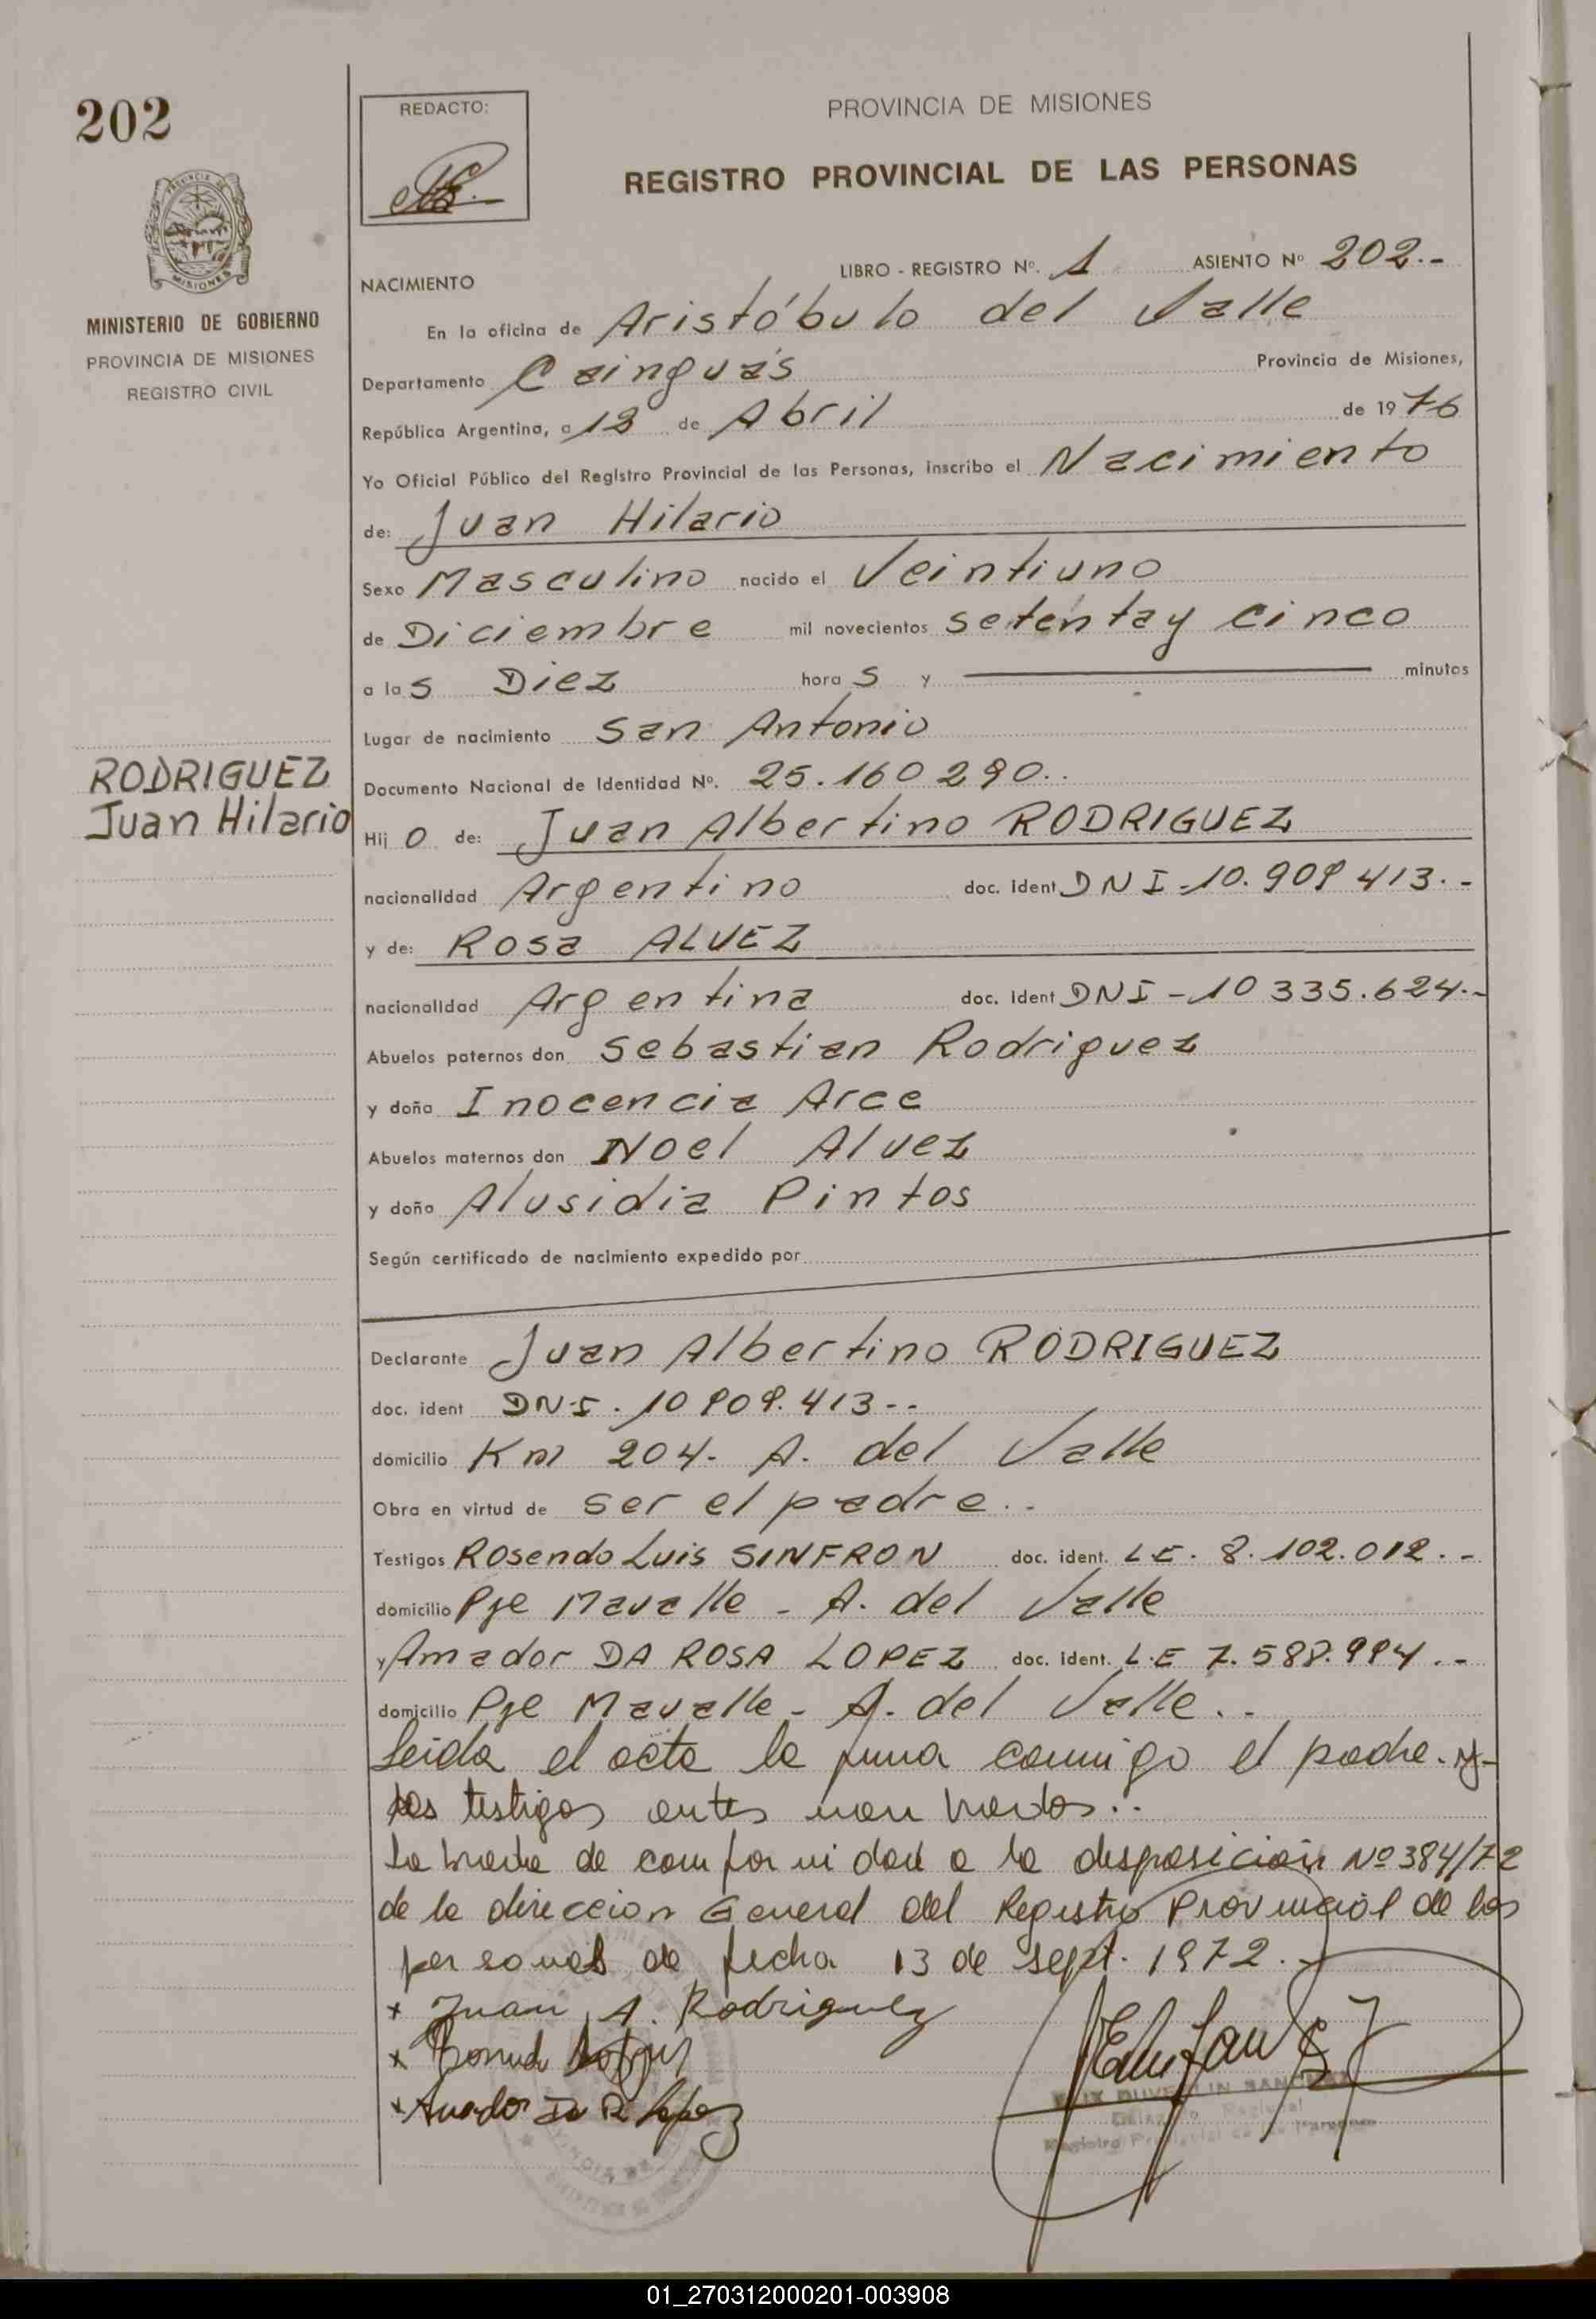 202
REDACTO:
PROVINCIA DE MISIONES
REGISTRO PROVINCIAL DE LAS PERSONAS
MISIONES
MINISTERIO DE GOBIERNO
PROVINCIA DE MISIONES
REGISTRO CIVIL
LIBRO - REGISTRO Nº. 1 ASIENTO Nº 202.-
NACIMIENTO
En la oficina de Aristóbulo del Valle
Departamento Cainguás Provincia de Misiones,
República Argentina, a 13 de Abril de 1976
Yo Oficial Público del Registro Provincial de las Personas, inscribo el Nacimiento
de: Juan Hilario
Sexo Masculino nacido el Veintiuno
de Diciembre mil novecientos setenta y cinco
a las Diez horas y minutos
Lugar de nacimiento San Antonio
RODRIGUEZ
Juan Hilario
Documento Nacional de Identidad Nº. 25.160290..
Hijo de: Juan Albertino RODRIGUEZ
nacionalidad Argentino doc. ident DNI-10.909413.-
y de: Rosa ALVEZ
nacionalidad Argentina doc. ident DNI-10335.624.-
Abuelos paternos don Sebastian Rodriguez
y doña Inocencia Arce
Abuelos maternos don Noel Alvez
y doña Alusidia Pintos
Según certificado de nacimiento expedido por
Declarante Juan Albertino RODRIGUEZ
doc. ident DNI. 10909.413--
domicilio Km 204- A. del Valle
Obra en virtud de ser el padre..
Testigos Rosendo Luis SINFRON doc. ident. LE. 8.102.012.-
domicilio Pje Mavalle - A. del Valle
y Amador DA ROSA LOPEZ doc. ident. L.E 7.588.994.-
domicilio Pje Mavalle - A. del Valle..
Leida el acta la firma conmigo el padre y
los testigos antes nombrados..
Labrada de conformidad a la disposición Nº 384/72
de la direccion General del Registro Provincial de las
personas de fecha 13 de sept. 1972.-
x Juan A. Rodriguez
x
x Amador Da R Lopez
01_270312000201-003908